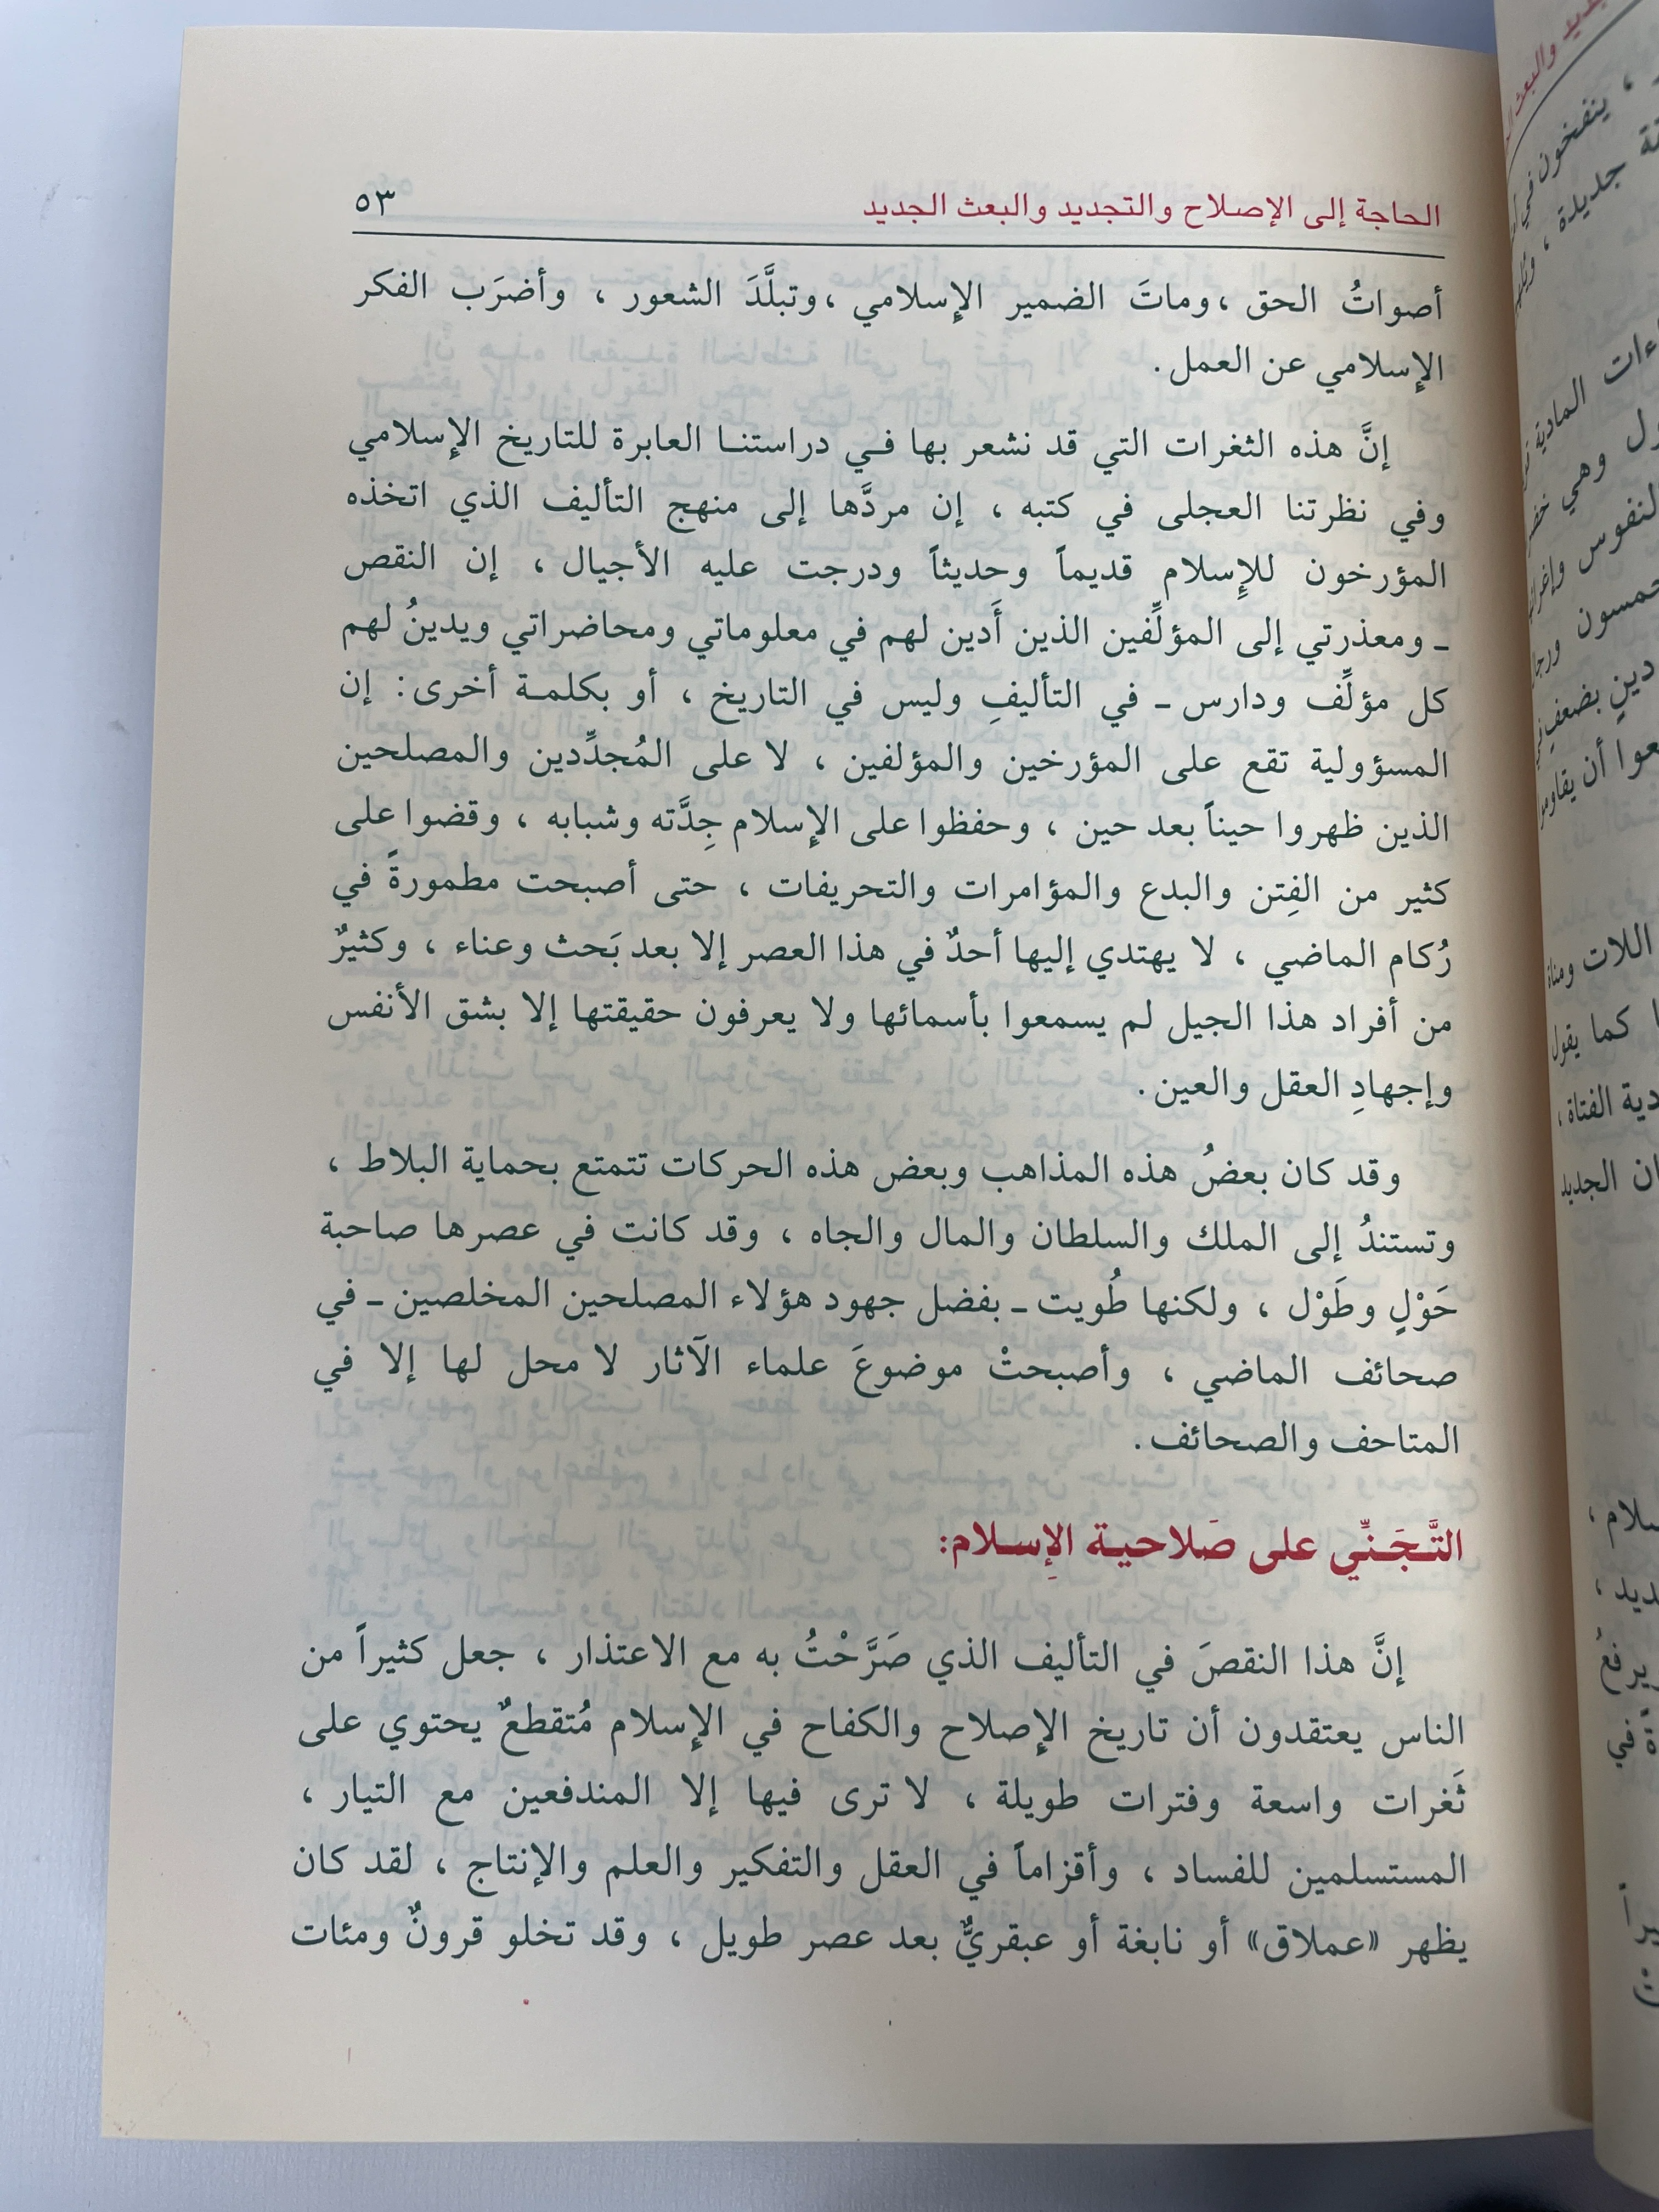 الحاجة إلى الإصلاح والتجديد والبعث الجديد ٥٣
أصواتُ الحق ، وماتَ الضمير الإسلامي ، وتبلَّدَ الشعور ، وأضرَب الفكر
الإسلامي عن العمل .
إنَّ هذه الثغرات التي قد نشعر بها فـي دراستنـا العابرة للتاريخ الإسلامي
وفي نظرتنا العجلى في كتبه ، إن مردَّها إلى منهج التأليف الذي اتخذه
المؤرخون للإسلام قديماً وحديثاً ودرجت عليه الأجيال ، إن النقص
ـ ومعذرتي إلى المؤلِّفين الذين أَدين لهم في معلوماتي ومحاضراتي ويدينُ لهم
كل مؤلِّف ودارس ـ في التأليفِ وليس في التاريخ ، أو بكلمـة أخرى: إن
المسؤولية تقع على المؤرخين والمؤلفين ، لا على المُجدِّدين والمصلحين
الذين ظهروا حيناً بعد حين ، وحفظوا على الإسلام جِدَّته وشبابه ، وقضوا على
كثير من الفِتن والبدع والمؤامرات والتحريفات ، حتى أصبحت مطمورةً في
رُكام الماضي ، لا يهتدي إليها أحدٌ في هذا العصر إلا بعد بَحث وعناء ، وكثيرٌ
من أفراد هذا الجيل لم يسمعوا بأسمائها ولا يعرفون حقيقتها إلا بشق الأنفس
وإجهادِ العقل والعين .
وقد كان بعضُ هذه المذاهب وبعض هذه الحركات تتمتع بحماية البلاط ،
وتستندُ إلى الملك والسلطان والمال والجاه ، وقد كانت في عصرها صاحبة
حَوْلٍ وطَوْل ، ولكنها طُويت ـ بفضل جهود هؤلاء المصلحين المخلصين ـ في
صحائف الماضي ، وأصبحتْ موضوعَ علماء الآثار لا محل لها إلا في
المتاحف والصحائف .
التَّـجَـنِّي على صَلاحيـة الإسـلام:
إنَّ هذا النقصَ في التأليف الذي صَرَّحْتُ به مع الاعتذار ، جعل كثيراً من
الناس يعتقدون أن تاريخ الإصلاح والكفاح في الإسلام مُتقطعٌ يحتوي على
ثَغرات واسعة وفترات طويلة ، لا ترى فيها إلا المندفعين مع التيار ،
المستسلمين للفساد ، وأقزاماً في العقل والتفكير والعلم والإنتاج ، لقد كان
يظهر «عملاق» أو نابغة أو عبقريٌّ بعد عصر طويل ، وقد تخلو قرونٌ ومئات